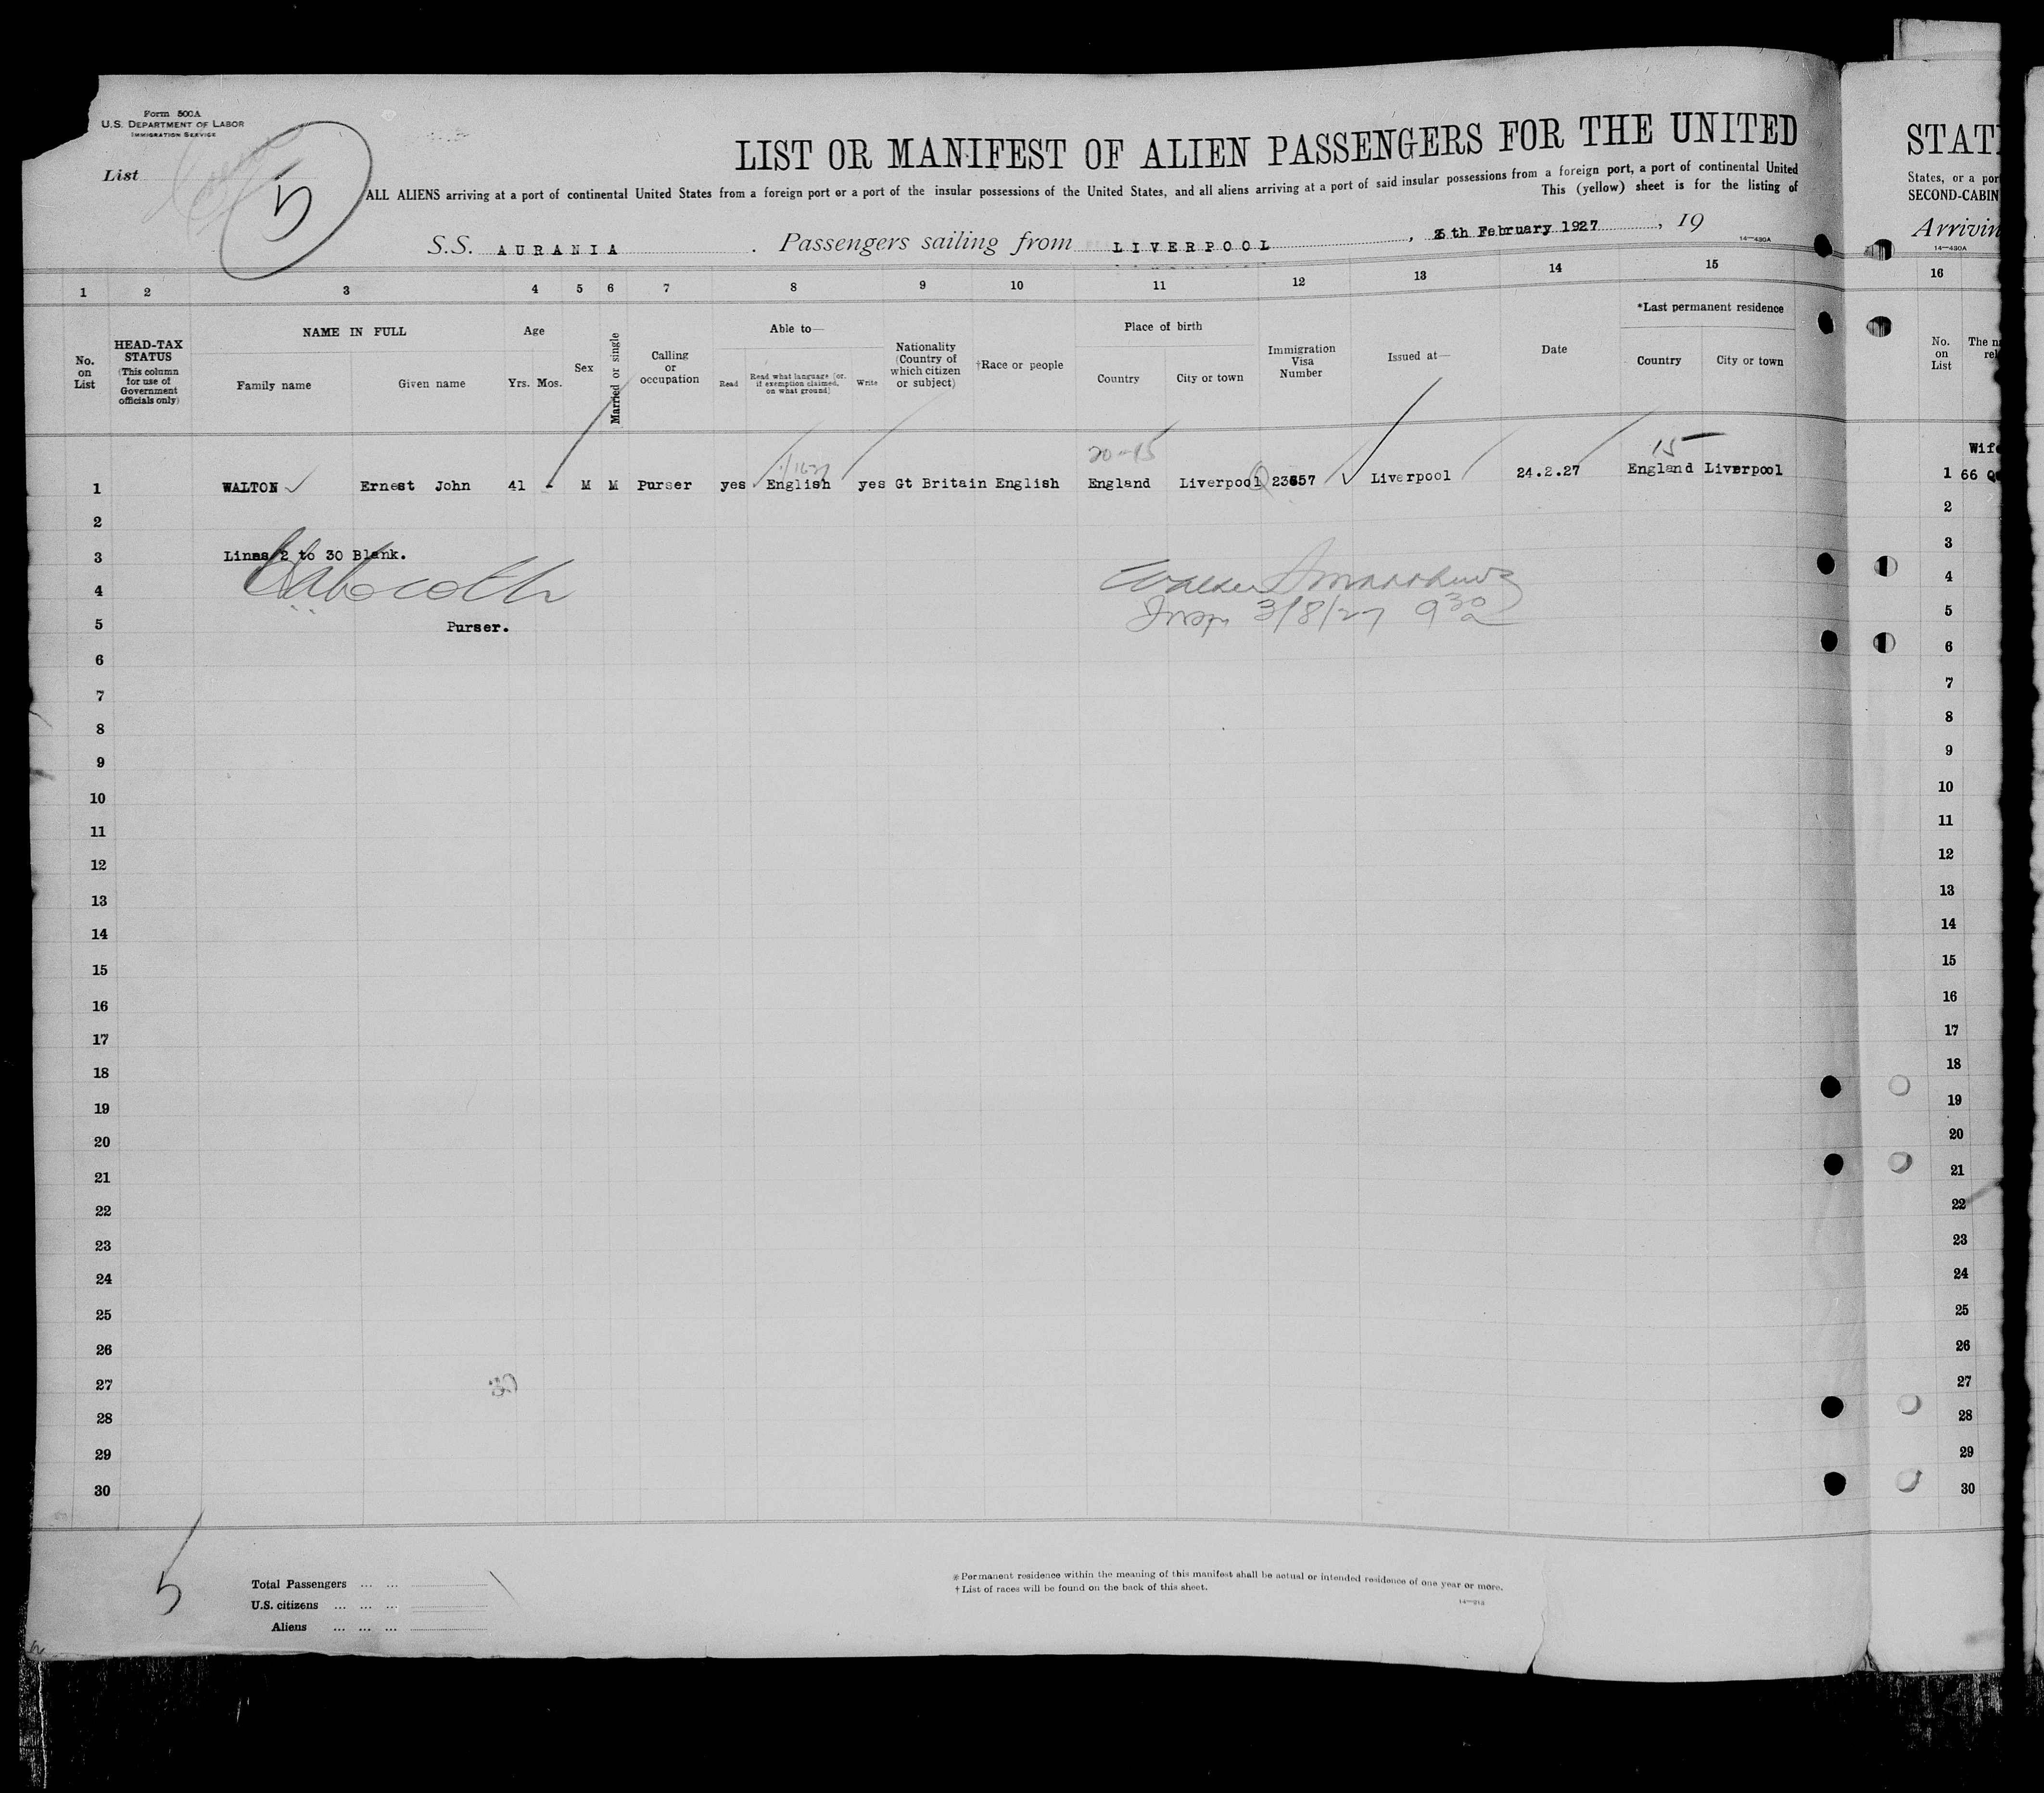 Form 500A
U.S. DEPARTMENT OF LABOR
IMMIGRATION SERVICE
List
5
LIST OR MANIFEST OF ALIEN PASSENGERS FOR THE UNITED
ALL ALIENS arriving at a port of continental United States from a foreign port or a port of the insular possessions of the United States, and all aliens arriving at a port of said insular possessions from a foreign port, a port of continental United
This (yellow) sheet is for the listing of
S.S. AURANIA . Passengers sailing from LIVERPOOL , th February 1927 , 19
14—430A
1 2 3 4 5 6 7 8 9 10 11 12 13 14 15
No. on List
HEAD-TAX STATUS
(This column for use of Government officials only)
NAME IN FULL
Family name
Given name
Age
Yrs. Mos.
Sex
Married or single
Calling or occupation
Able to—
Read
Read what language (or, if exemption claimed, on what ground)
Write
Nationality (Country of which citizen or subject)
†Race or people
Place of birth
Country
City or town
Immigration Visa Number
Issued at—
Date
*Last permanent residence
Country
City or town
20-15
15
1 WALTON Ernest John 41 - M M Purser yes English yes Gt Britain English England Liverpool Q 23557 Liverpool 24.2.27 England Liverpool
2
3 Lines 2 to 30 Blank.
4
5 Purser.
Insp. 3/8/27 9 30 a
6
7
8
9
10
11
12
13
14
15
16
17
18
19
20
21
22
23
24
25
26
27
28
29
30
5
Total Passengers ... ...
U.S. citizens ... ... ...
Aliens ... ... ...
*Permanent residence within the meaning of this manifest shall be actual or intended residence of one year or more.
†List of races will be found on the back of this sheet.
STAT
States, or a por
SECOND-CABIN
Arrivin
14—430A
16
No. on List
The n
rel
Wife
1 66
2
3
4
5
6
7
8
9
10
11
12
13
14
15
16
17
18
19
20
21
22
23
24
25
26
27
28
29
30